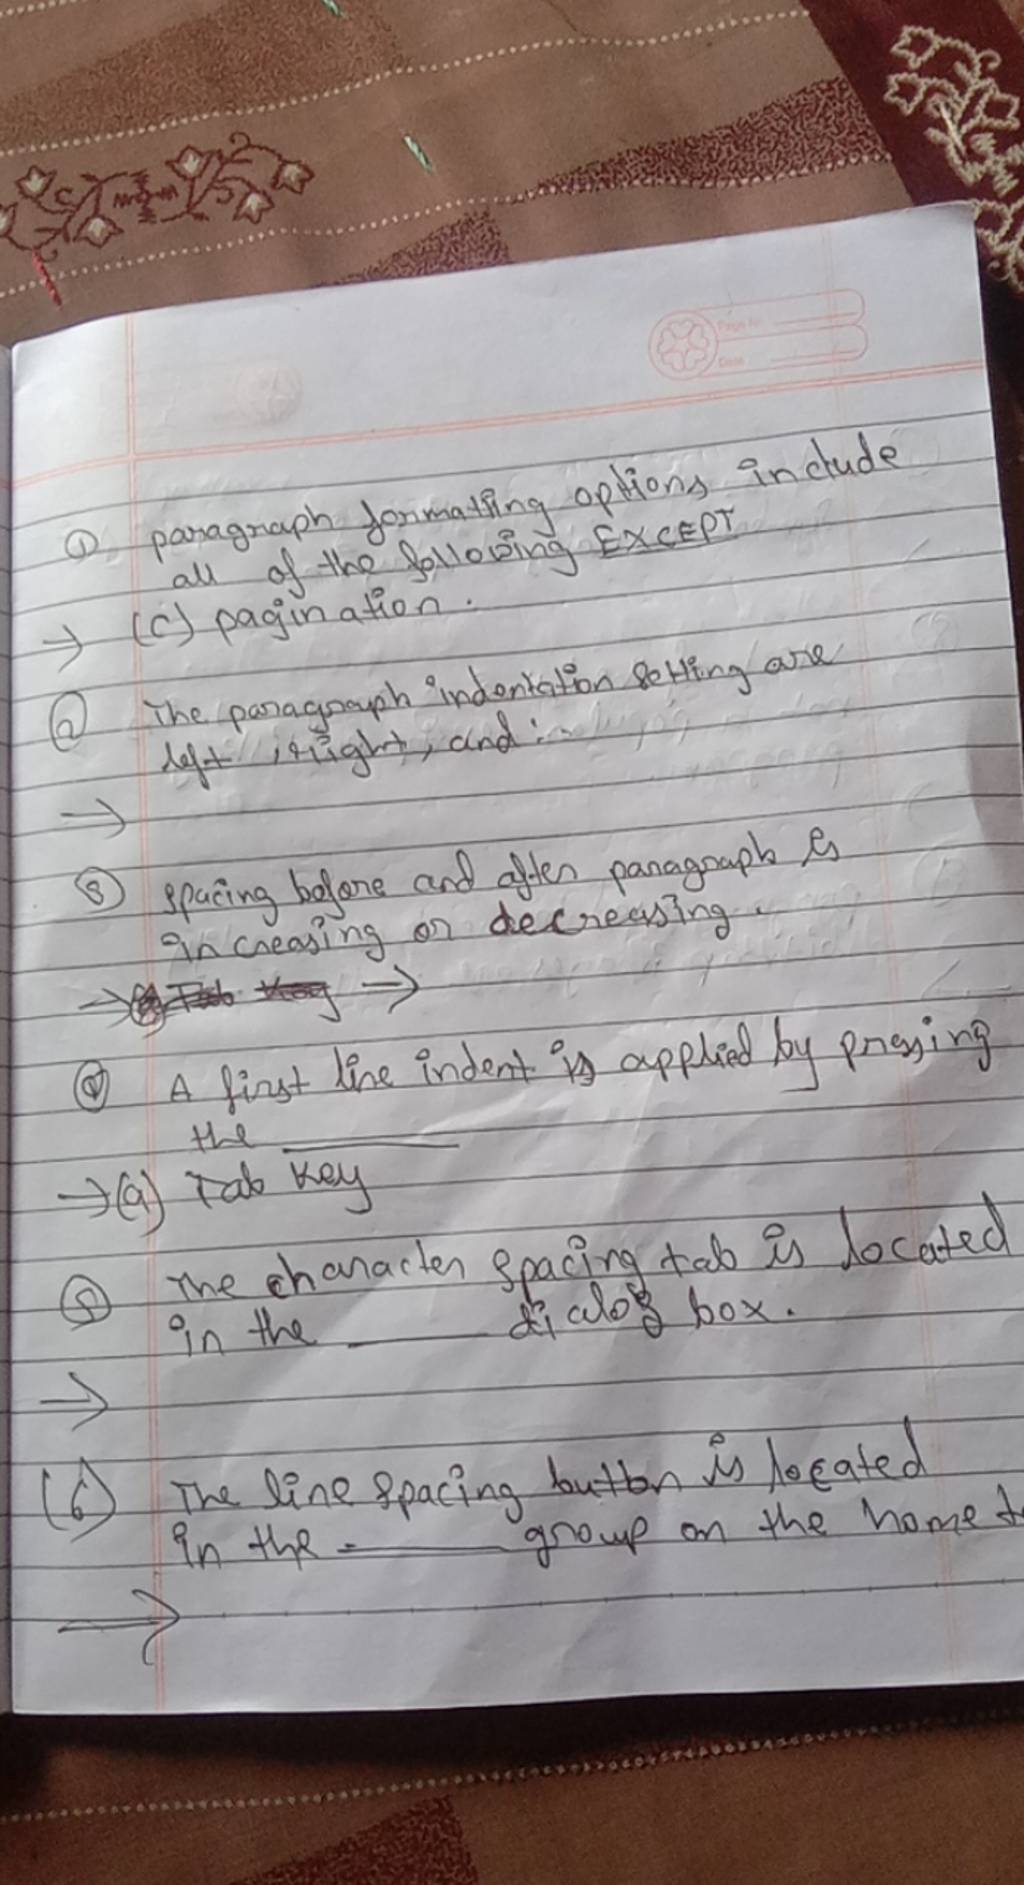 Page No.
Date
① paragraph formatting options include
all of the following EXCEPT
→ (c) pagination.
② The paragraph indentation setting are
left, right, and :
→
③ spacing before and after paragraph is
increasing or decreasing.
→ →
④ A first line indent is applied by pressing
the ______
→ (a) Tab Key
⑤ The character spacing tab is located
in the ______ dialog box.
→
(6) The line spacing button is located
in the ______ group on the home
→